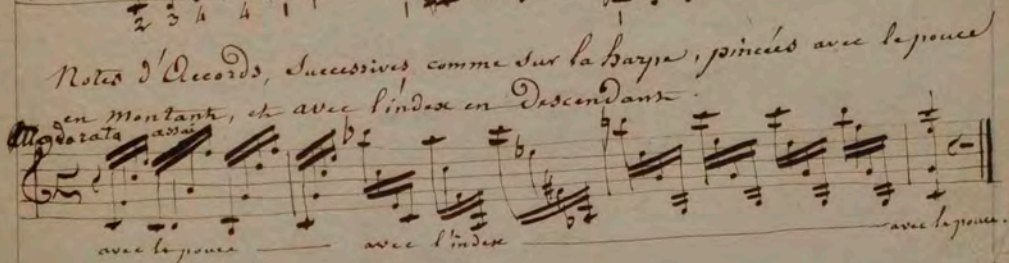 2 3 4 4 1 1 1 1
Notes d'Accords, successives comme sur la harpe, pincées avec le pouce
en montant, et avec l'index en Descendant.
Moderato assai
avec le pouce avec l'index avec le pouce.